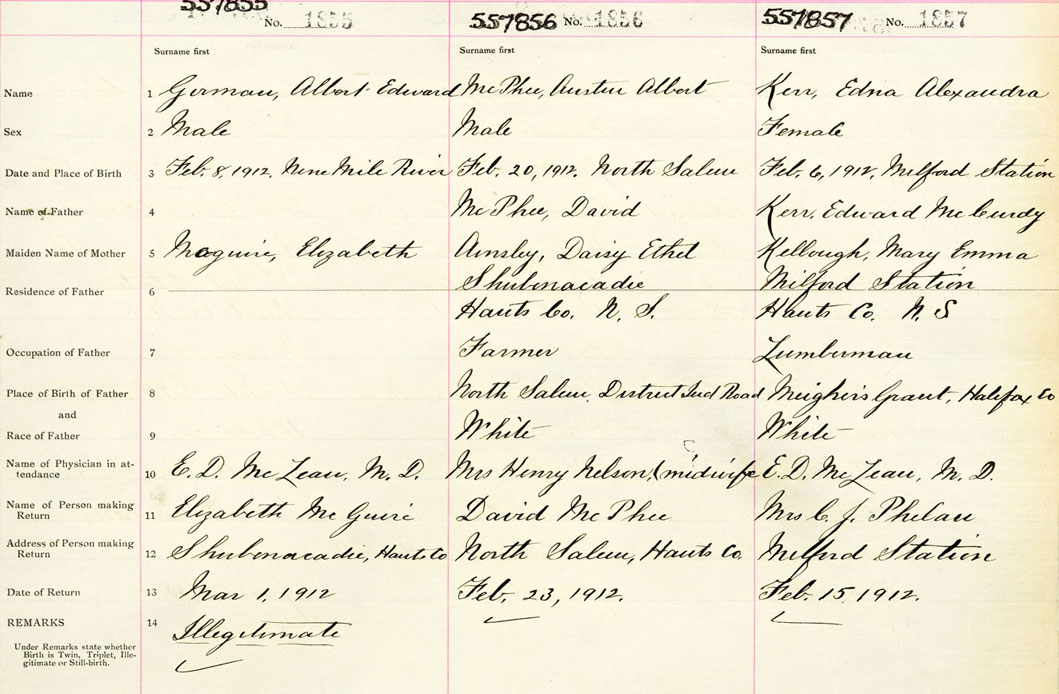 557855 No. 1855 557856 No. 1856 557857 No. 1857
Surname first Surname first Surname first
Name 1 Gorman, Albert Edward McPhee, Austin Albert Kerr, Edna Alexandra
Sex 2 Male Male Female
Date and Place of Birth 3 Feb. 8, 1912, Nine Mile River Feb. 20, 1912. North Salem Feb. 6, 1912. Milford Station
Name of Father 4 McPhee, David Kerr, Edward McCurdy
Maiden Name of Mother 5 Maguire, Elizabeth Ainsley, Daisy Ethel Kellough, Mary Emma
Residence of Father 6 Shubenacadie Milford Station
Hants Co. N. S. Hants Co. N. S
Occupation of Father 7 Farmer Lumberman
Place of Birth of Father 8 North Salem, District Ind Road Meigher's Grant, Halifax Co
and
Race of Father 9 White White
Name of Physician in at-
tendance 10 E. D. McLean, M. D. Mrs Henry Nelson, (midwife E. D. McLean, M. D.
Name of Person making
Return 11 Elizabeth McGuire David McPhee Mrs C. J. Phelan
Address of Person making
Return 12 Shubenacadie, Hants Co North Salem, Hants Co. Milford Station
Date of Return 13 Mar 1, 1912 Feb. 23, 1912. Feb. 15, 1912.
REMARKS 14 Illegitimate
Under Remarks state whether
Birth is Twin, Triplet, Ille-
gitimate or Still-birth.